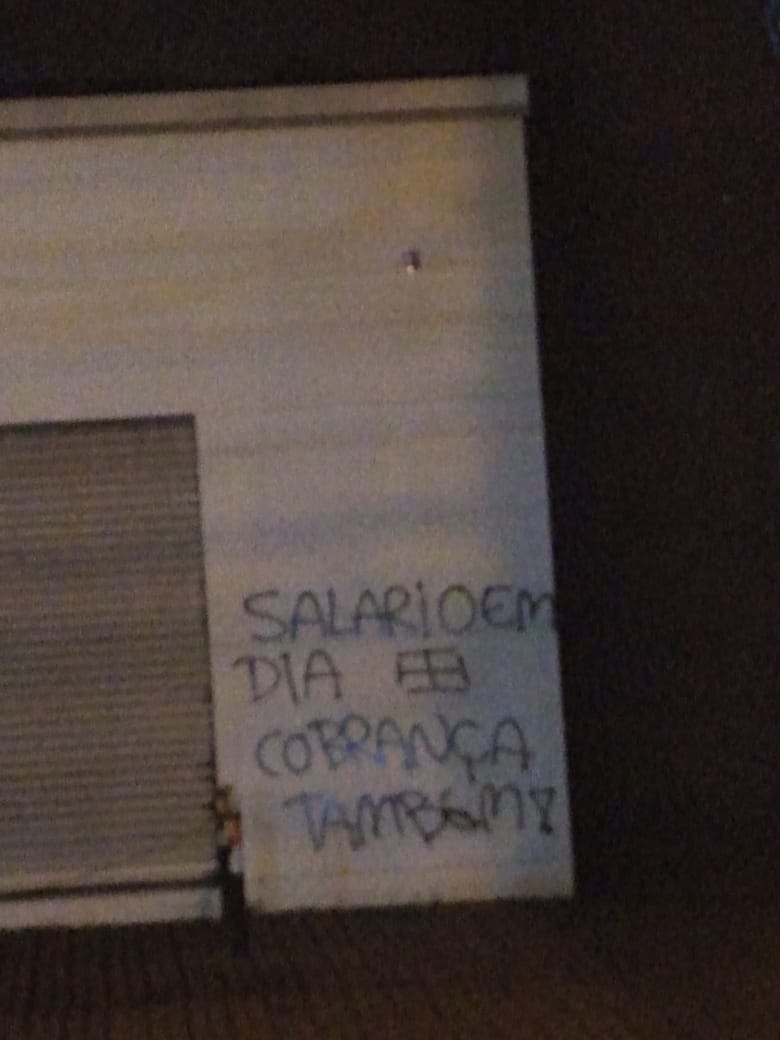 SALARIO EM
DIA
COBRANÇA
TAMBÉM